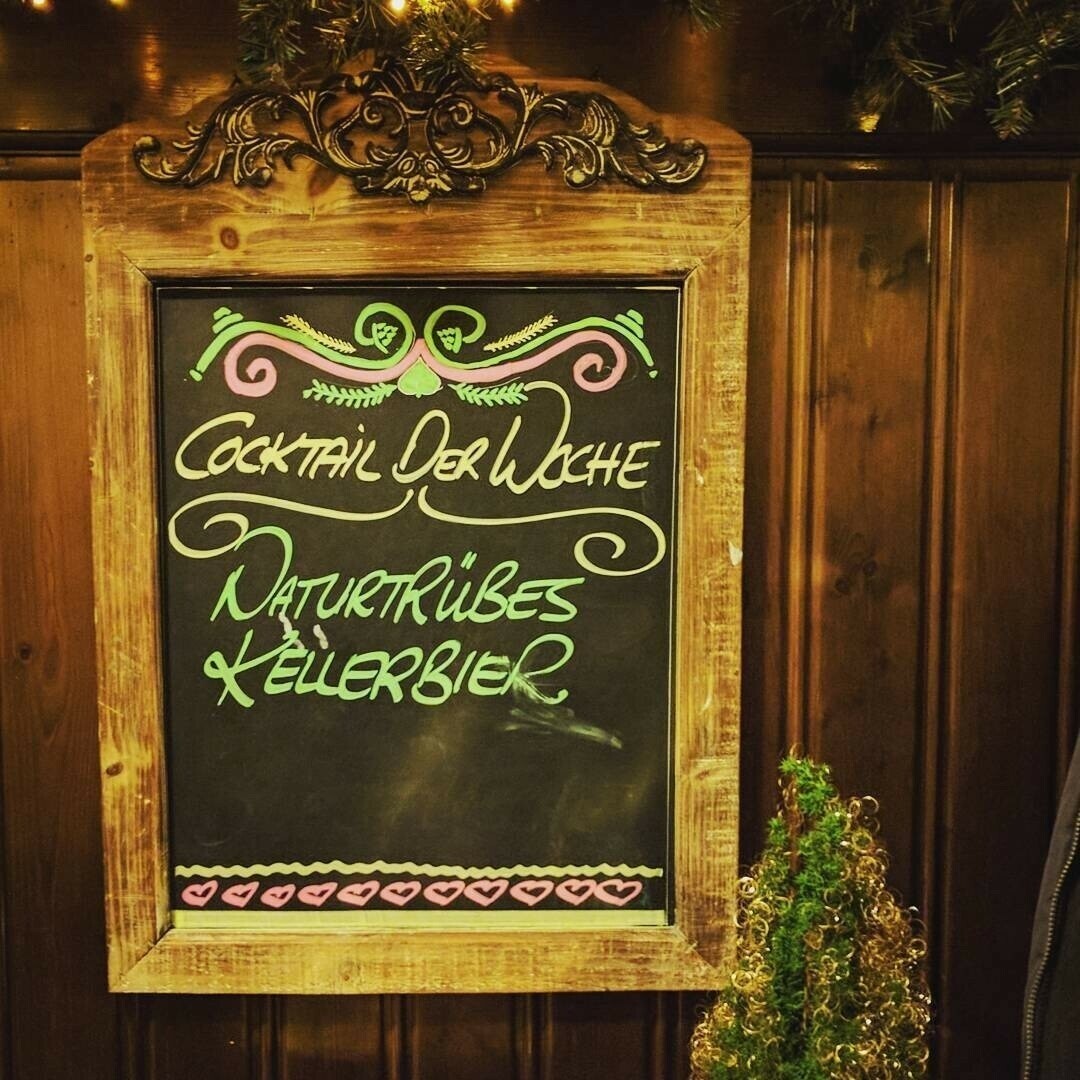 COCKTAIL DER WOCHE
NATURTRÜBES
KELLERBIER